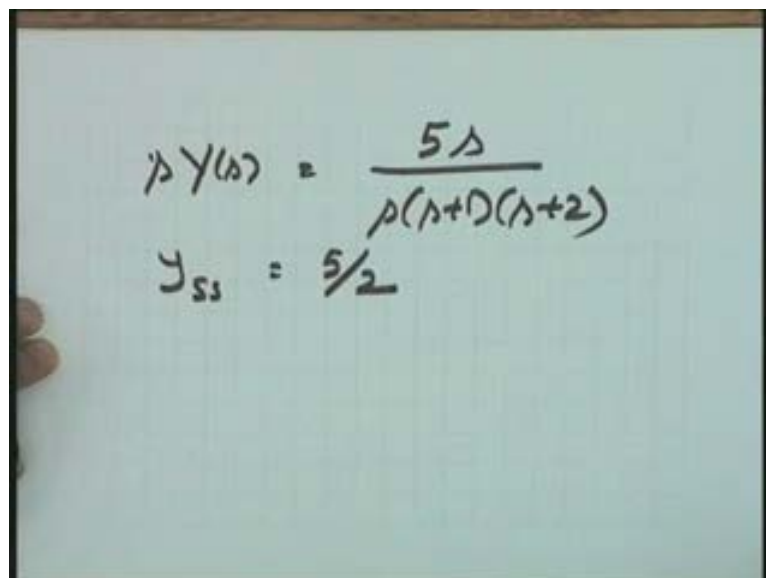 sY(s) = 5s / s(s+1)(s+2)
yss = 5/2